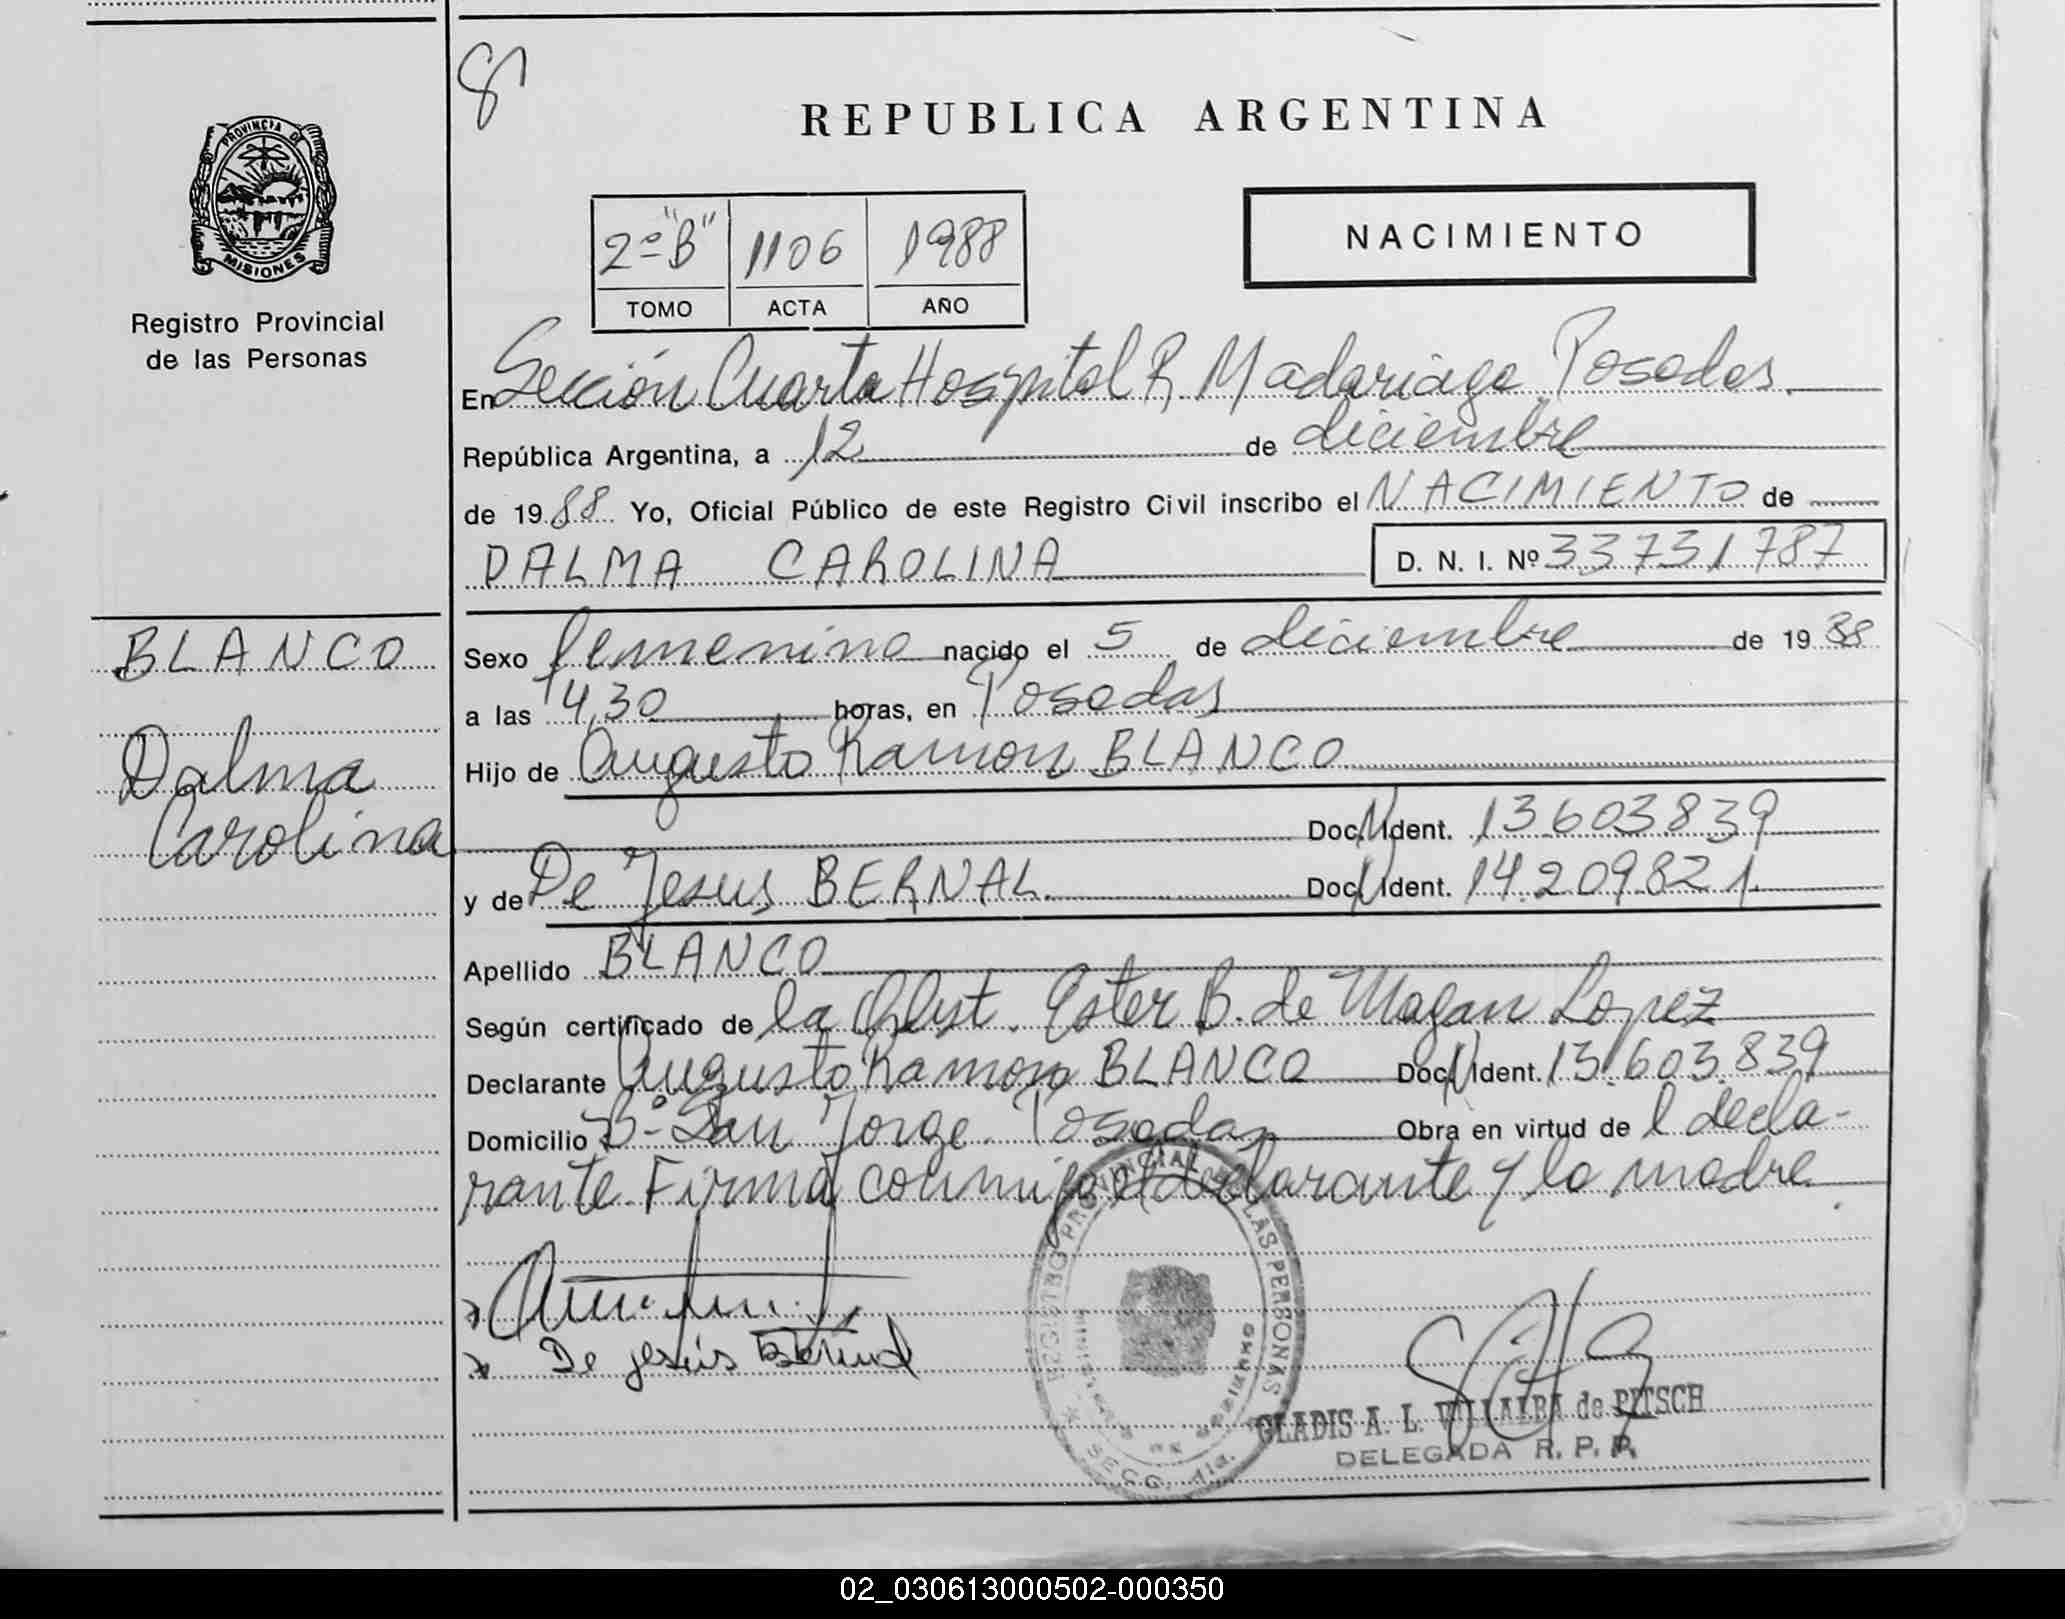 8
PROVINCIA DE
MISIONES
Registro Provincial
de las Personas
REPUBLICA ARGENTINA
2º "B" 1106 1988
TOMO ACTA AÑO
NACIMIENTO
En Sección Cuarta Hospital R. Madariaga Posadas
República Argentina, a 12 de diciembre
de 1988 Yo, Oficial Público de este Registro Civil inscribo el NACIMIENTO de
DALMA CAROLINA D. N. I. Nº 33731787
BLANCO
Dalma
Carolina
Sexo femenino nacido el 5 de diciembre de 1988
a las 14,30 horas, en Posadas
Hijo de Augusto Ramon BLANCO
Doc. N. Ident. 13603839
y de De Jesus BERNAL Doc. N. Ident. 14209821
Apellido BLANCO
Según certificado de la Obst. Ester B. de Magan Lopez
Declarante Augusto Ramon BLANCO Doc. N. Ident. 13.603.839
Domicilio Bº San Jorge Posadas Obra en virtud de l decla-
rante. Firma conmigo el declarante y la madre.
De jesús Bernal
REGISTRO PROVINCIAL DE LAS PERSONAS
SECC. 4ta.
GLADIS A. L. VILLALBA de PITSCH
DELEGADA R. P. P.
02_030613000502-000350